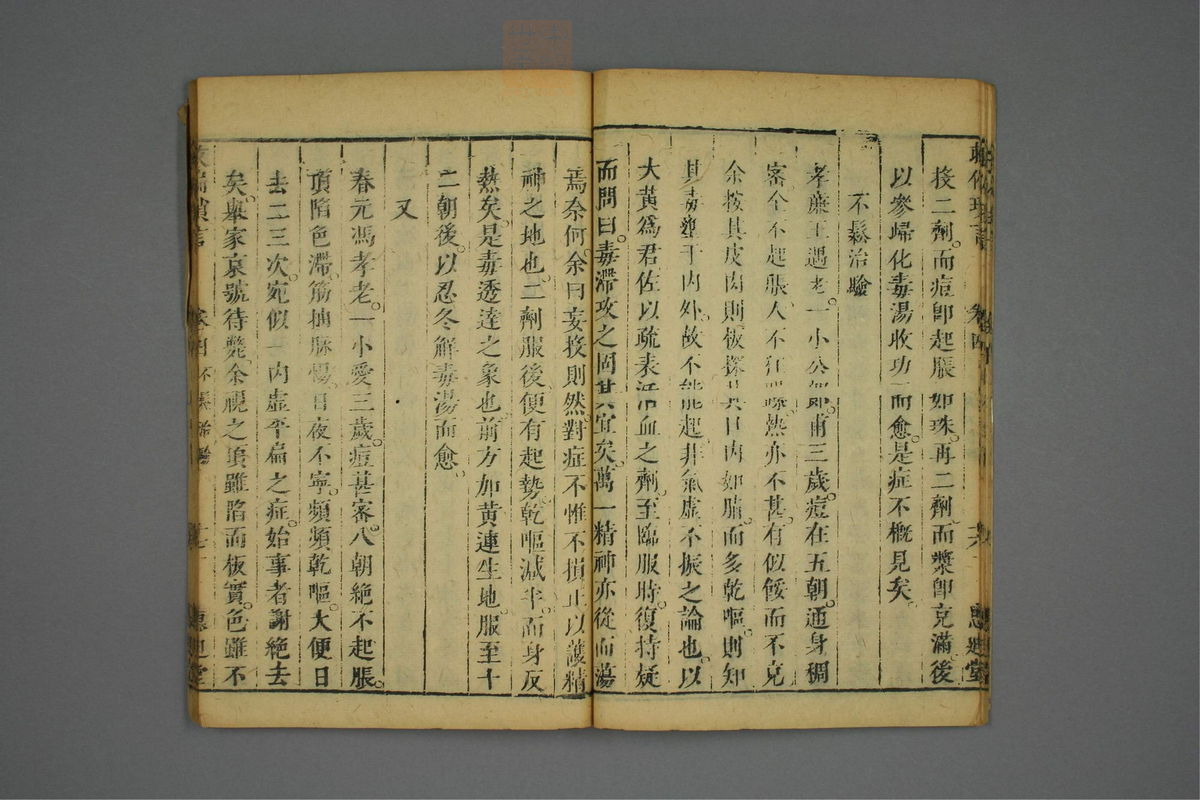 投二劑。而痘卽起脹如珠。再二劑而漿卽充滿後
以參歸化毒湯收功而愈。是症不概見矣。
不鬆治驗
孝廉王遇老。一小公郞。甫三歲。痘在五朝。通身稠
密全不起脹。人不狂躁。熱亦不甚。有似餒而不克
余按其皮肉則板探其口內如腊。而多乾嘔。則知
其毒壅于內外。故不能起。非氣虛不振之論也。以
大黃爲君佐以疏表活血之劑。至臨服時。復持疑
而問曰。毒滯攻之固其宜矣。萬一精神亦從而蕩
焉奈何。余曰妄投則然。對症不惟不損。正以護精
神之地也。二劑服後。便有起勢。乾嘔減半。而身反
熱矣。是毒透達之象也。前方加黃連生地。服至十
二朝後。以忍冬解毒湯而愈。
又
春元馮孝老。一小愛三歲。痘甚密。八朝絶不起脹。
頂陷色滯。筋抽脉惕。日夜不寧。頻頻乾嘔。大便日
去二三次。宛似一內虛平扁之症。始事者謝絶去
矣。舉家哀號待斃。余視之頂雖陷而板實。色雖不
卷四
不鬆治驗
惠迪堂